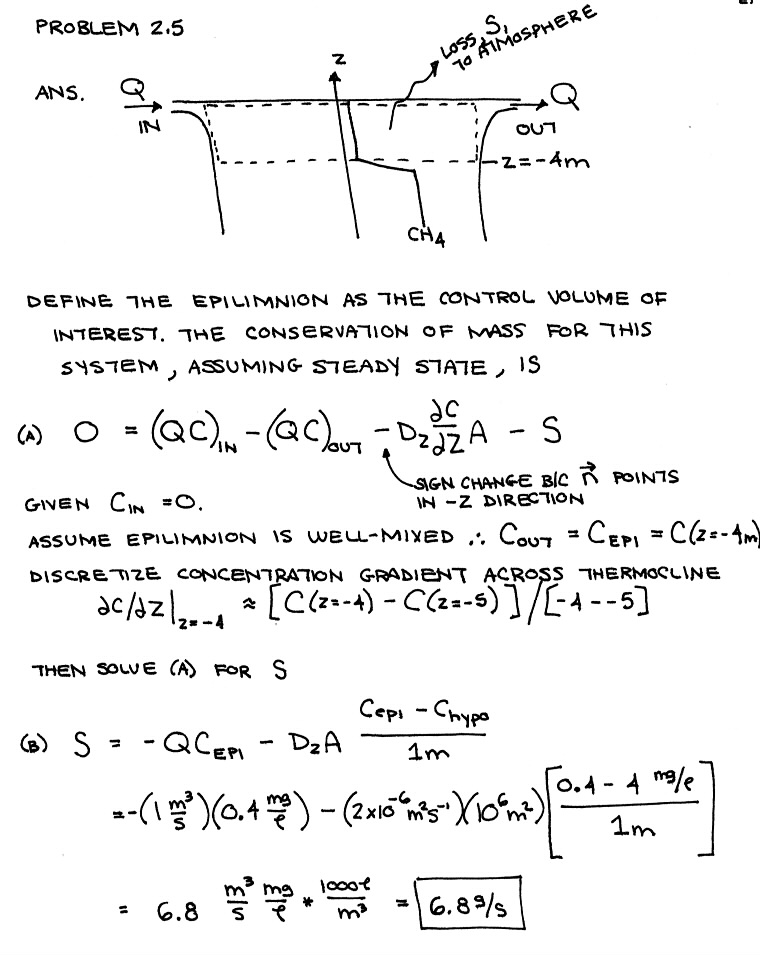 PROBLEM 2.5
LOSS, S,
TO ATMOSPHERE
Z
ANS.
Q
IN
Q
OUT
Z=-4m
CH4
DEFINE THE EPILIMNION AS THE CONTROL VOLUME OF
INTEREST. THE CONSERVATION OF MASS FOR THIS
SYSTEM, ASSUMING STEADY STATE, IS
(A) 0 = (QC)IN - (QC)OUT - DZ ∂C/∂Z A - S
SIGN CHANGE B/C n⃗ POINTS
IN -Z DIRECTION
GIVEN CIN = 0.
ASSUME EPILIMNION IS WELL-MIXED ∴ COUT = CEPI = C(Z=-4m)
DISCRETIZE CONCENTRATION GRADIENT ACROSS THERMOCLINE
∂C/∂Z|Z=-4 ≈ [C(Z=-4) - C(Z=-5)]/[-4--5]
THEN SOLVE (A) FOR S
(B) S = -QCEPI - DZA (Cepi - Chypo)/1m
=-(1 m³/s)(0.4 mg/ℓ) - (2x10⁻⁶ m²s⁻¹)(10⁶m²)[(0.4 - 4 mg/ℓ)/1m]
= 6.8 m³/s mg/ℓ * 1000ℓ/m³ = 6.8g/s